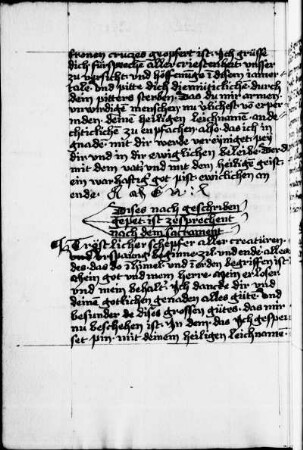 kronen cruces geopfert ist · Ich grüsse
dich fürsprech aller cristenheit unsser
zu versicht und hoffnunge in disem iamer
tale und pitte dich diemüticliche durch
dein pitters sterben · das du mir armen
unwirdige menschen nu
den · deinē heiligen leichnam an de
chticliche zu enpfachen also das ich in
gnade mit dir werde vereyniget · pey
dir und in dir ewiglichen beleibe · Der du
mit dem vat und mit dem heilige geist
ein warhaftig got pist ewiclichen an
ende
Dises nach geschriben
gepet ist zesprechent
nach dem sacrament
Tröstlicher schepfer aller creaturen
und ursprung beginne zu und ende alles
des das do in himel und in erden begriffen ist
mein got und mein herre mein erloser
und mein behalt Ich dancke dir und
deinē gotlichen genaden alles güte und
besunder de dises grossen gutes das mir
nu beschehen ist In dem das Ich gespei
set pin mit deinem heiligen leichnamē